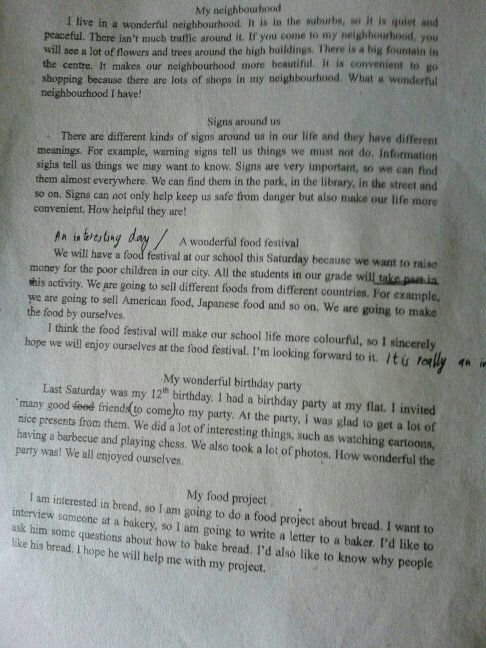 My neighbourhood
I live in a wonderful neighbourhood. It is in the suburbs, so it is quiet and
peaceful. There isn't much traffic around it. If you come to my neighbourhood, you
will see a lot of flowers and trees around the high buildings. There is a big fountain in
the centre. It makes our neighbourhood more beautiful. It is convenient to go
shopping because there are lots of shops in my neighbourhood. What a wonderful
neighbourhood I have!
Signs around us
There are different kinds of signs around us in our life and they have different
meanings. For example, warning signs tell us things we must not do. Information
signs tell us things we may want to know. Signs are very important, so we can find
them almost everywhere. We can find them in the park, in the library, in the street and
so on. Signs can not only help keep us safe from danger but also make our life more
convenient. How helpful they are!
An interesting day / A wonderful food festival
We will have a food festival at our school this Saturday because we want to raise
money for the poor children in our city. All the students in our grade will take part in
this activity. We are going to sell different foods from different countries. For example,
we are going to sell American food, Japanese food and so on. We are going to make
the food by ourselves.
I think the food festival will make our school life more colourful, so I sincerely
hope we will enjoy ourselves at the food festival. I'm looking forward to it. It is really an in
My wonderful birthday party
Last Saturday was my 12th birthday. I had a birthday party at my flat. I invited
many good food friends (to come) to my party. At the party, I was glad to get a lot of
nice presents from them. We did a lot of interesting things, such as watching cartoons,
having a barbecue and playing chess. We also took a lot of photos. How wonderful the
party was! We all enjoyed ourselves.
My food project
I am interested in bread, so I am going to do a food project about bread. I want to
interview someone at a bakery, so I am going to write a letter to a baker. I'd like to
ask him some questions about how to bake bread. I'd also like to know why people
like his bread. I hope he will help me with my project.